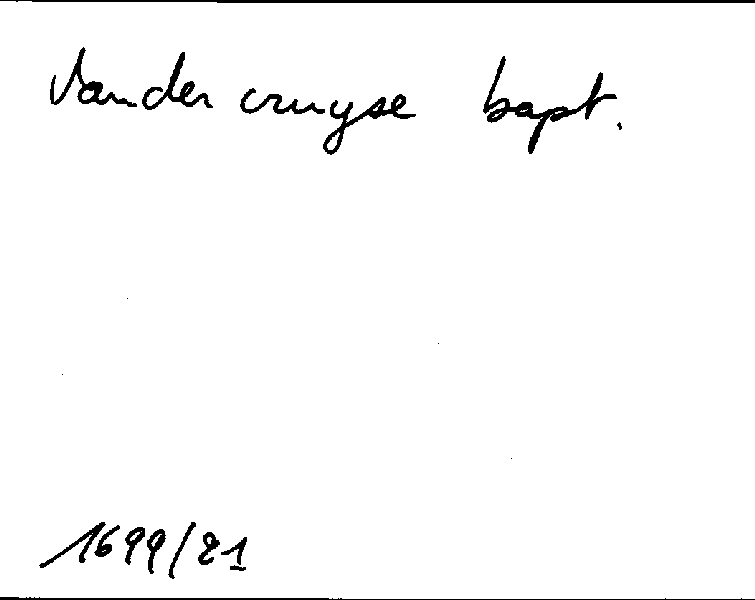 Vander cruyse bapt.
1699/21